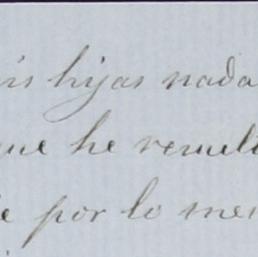 is hijas nada
que he resuelt
e por lo men